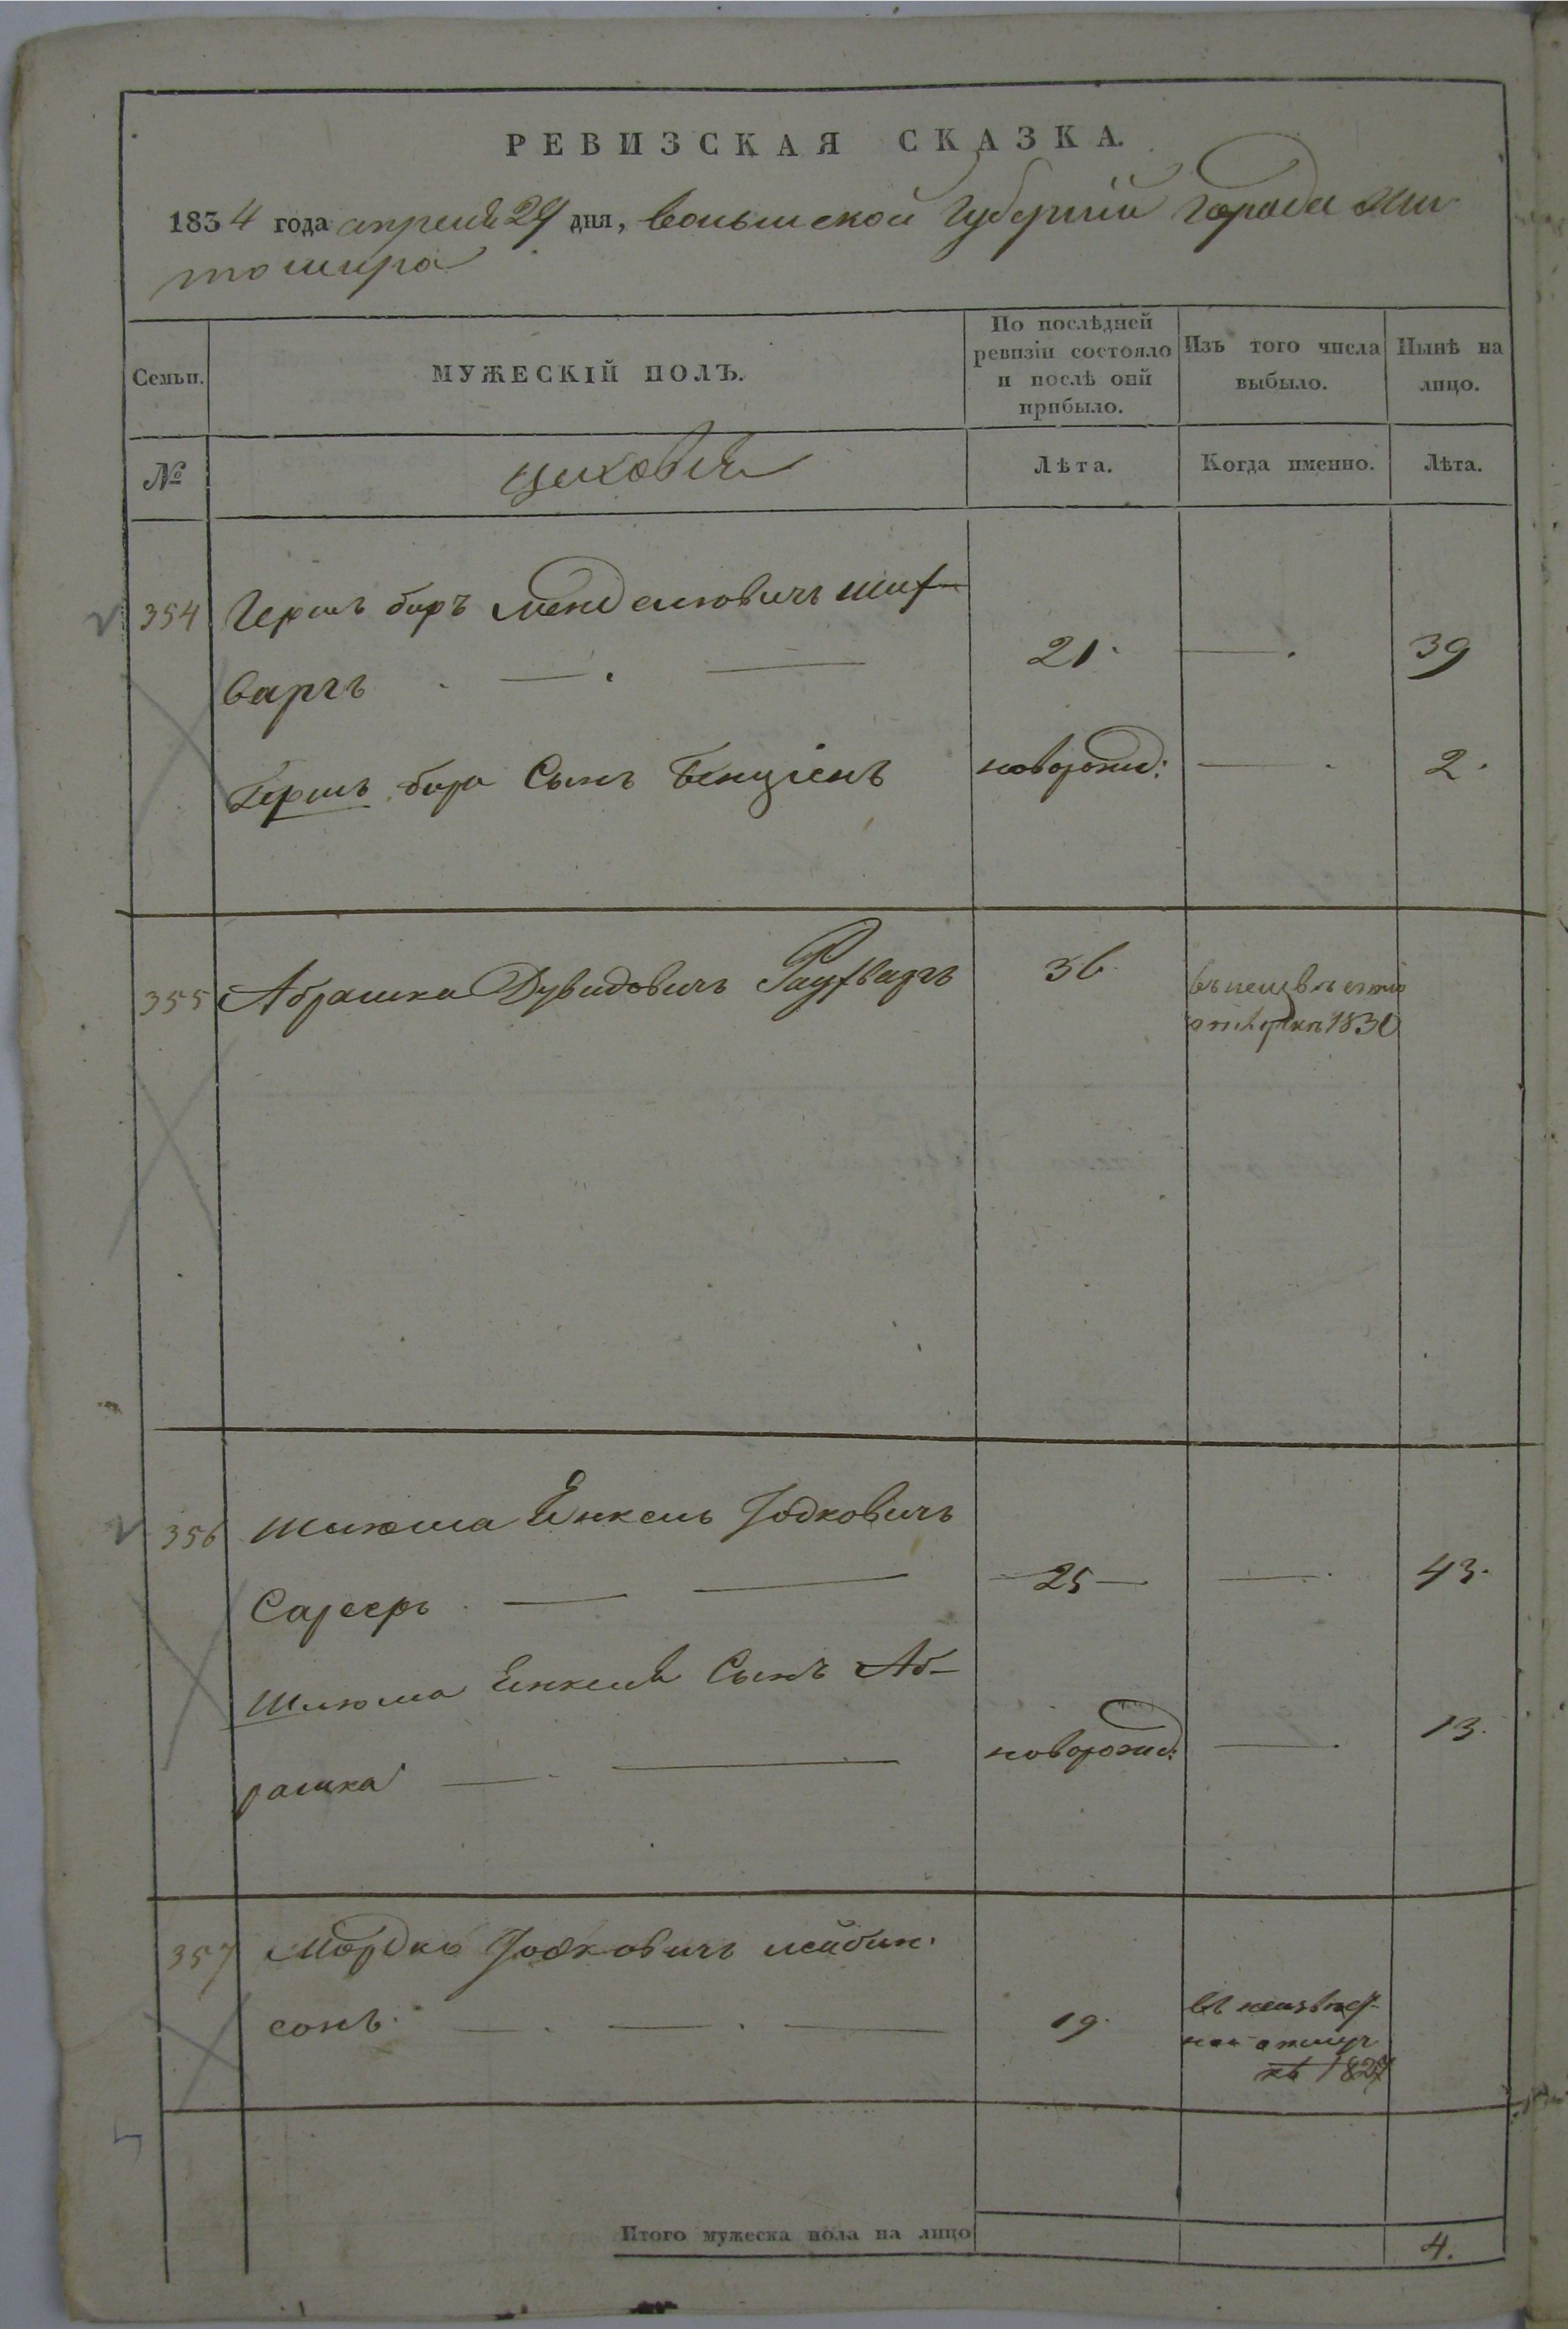 РЕВИЗСКАЯ СКАЗКА.
1834 года апреля 29 дня, волынской Губернiи Города Жи
томира
Семьи.
МУЖЕСКIЙ ПОЛЪ.
По послѣдней
ревизiи состояло
и послѣ оной
прибыло.
Изъ того числа
выбыло.
Нынѣ на
лицо.
№
Лѣта.
Когда именно.
Лѣта.
354 Гершъ беръ Менделіовичъ
варгъ 21 39
Гершъ бера Сынъ Бенціенъ новорожд: 2.
355 Абрамка Дувидовичъ 36
въ неизвѣстно
отлучкѣ 1830
356 Шліома Енкель Іосковичъ
25 43.
Шліома Енкеля Сынъ Аб-
рамка новорожд: 13.
357 Мордко Іосковичъ лейбин.
сонъ 19.
въ неизвѣст-
ной отлуч
кѣ 1827
Итого мужеска пола на лицо 4.